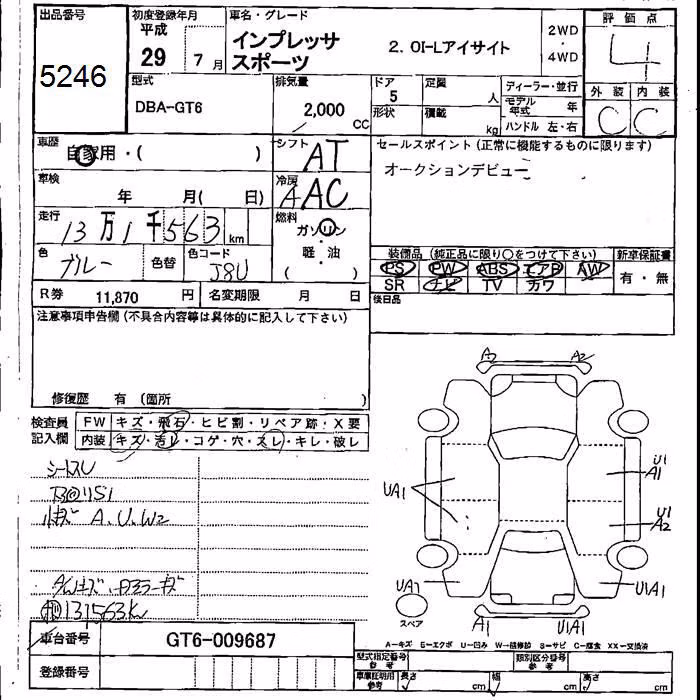 出品番号
5246
初度登録年月
平成
29 7 月
車名・グレード
インプレッサ
スポーツ
2. 0I-Lアイサイト
2WD
・
4WD
評価点
4
外装 内装
C C
型式
DBA-GT6
排気量
2,000
CC
ドア
5
形状
定員
人
積載
kg
ディーラー・並行
モデル年式 年
ハンドル 左・右
車歴
自家用・( )
シフト
AT
車検
年 月( 日)
冷房
AAC
走行
13万1千563 km
燃料
ガソリン
・
軽・油
( )
色
ブルー
色替
色コード
J8U
R券 11,870 円
名変期限 月 日
セールスポイント (正常に機能するものに限ります)
オークションデビュー
装備品 (純正品に限り○をつけて下さい)
PS PW ABS エアB AW
SR ナビ TV カワ
新車保証書
有・無
後日品
注意事項申告欄 (不具合内容等は具体的に記入して下さい)
修復歴 有 (箇所 )
検査員
記入欄
FW キズ・飛石・ヒビ割・リペア跡・X要
内装 キズ・汚レ・コゲ・穴・スレ・キレ・破レ
シートスレ
小キズ A.U.W2
131563K
A2 A2
UA1
U1
A1
U1
A2
UA1
U1A1
A1
U1A1
スペア
A－キズ E－エクボ U－凹み W－補修跡 S－サビ C－腐食 XX－交換済
車台番号 GT6-009687
登録番号
型式指定番号
参考
類別区分番号
参考
車庫証明用
参考
長さ cm 幅 cm 高さ cm